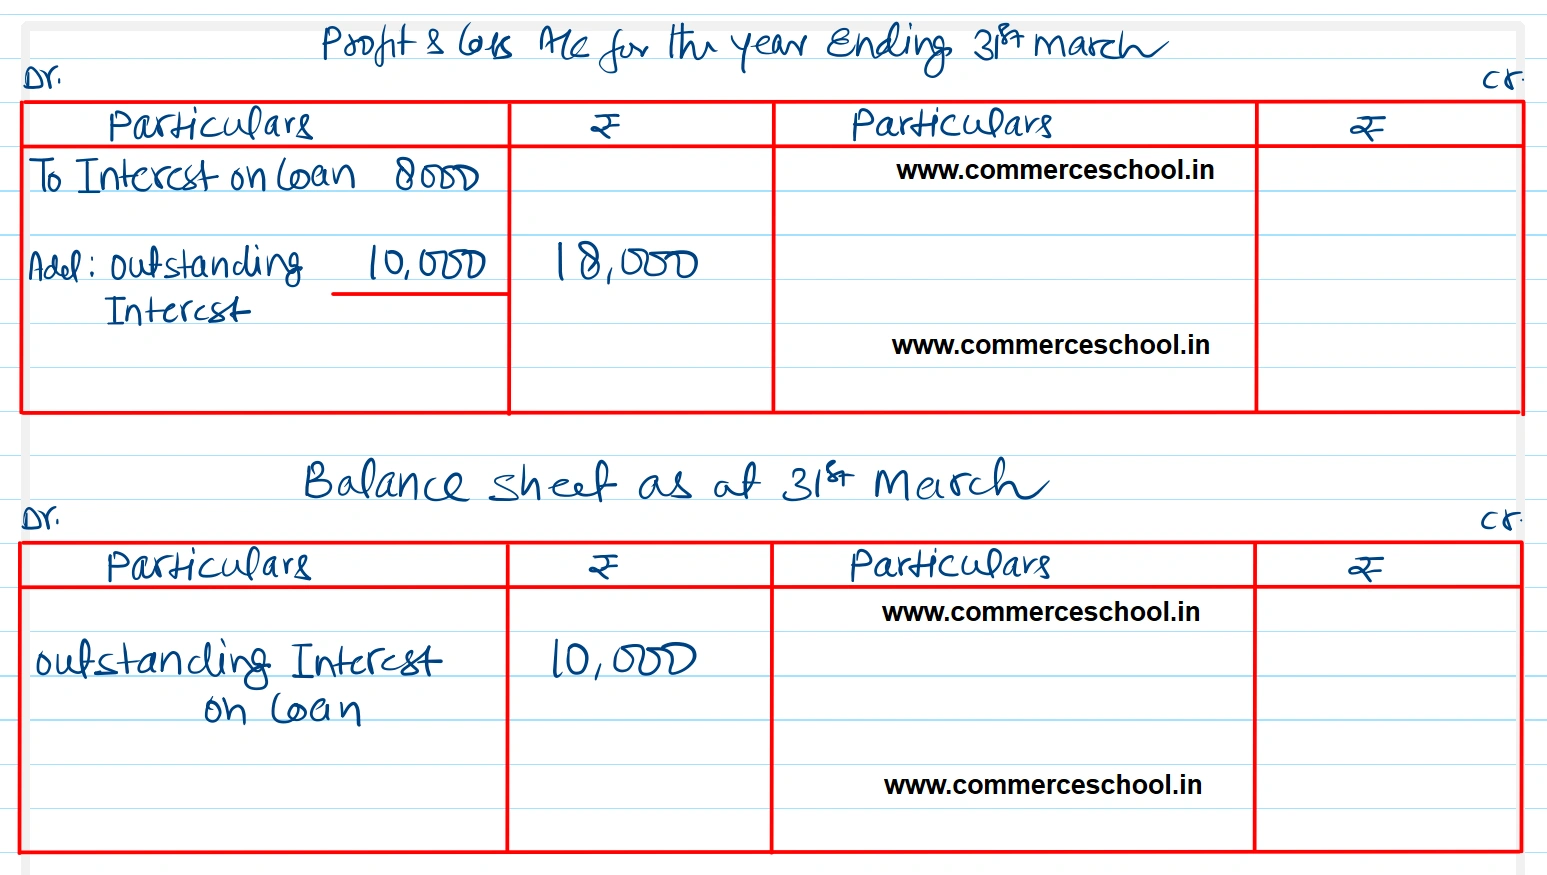 Profit & Loss A/c for the year Ending 31st March
Dr. Cr.
Particulars ₹ Particulars ₹
To Interest on Loan 8000 www.commerceschool.in
Add: outstanding 10,000 18,000
Interest
www.commerceschool.in
Balance sheet as at 31st March
Dr. Cr.
Particulars ₹ Particulars ₹
www.commerceschool.in
outstanding Interest 10,000
on Loan
www.commerceschool.in